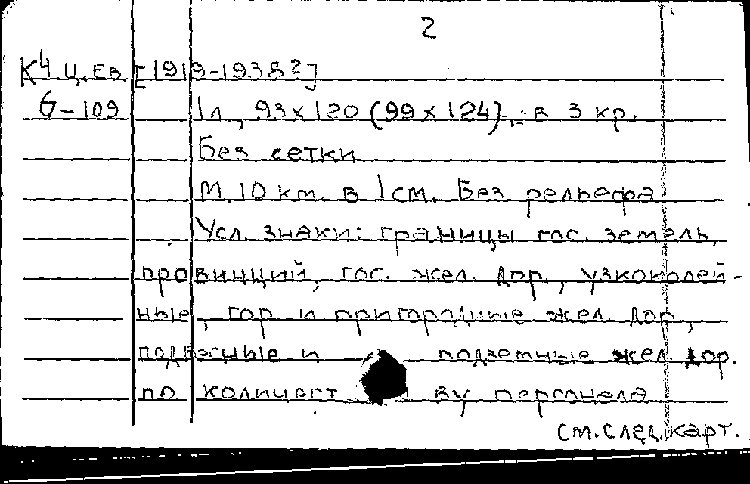 2
К4 Ц.Ев. [1919-1938?]
6-109 1л, 93х120 (99х124), в 3 кр.
Без сетки
М. 10 км. в 1 см. Без рельефа
Усл. знаки: границы гос. земель,
провинций, гос. жел. дор., узкоколей-
ные, гор. и пригородные жел. дор.,
подвесные и подземные жел. дор.
по количеству персонала
см. след. карт.